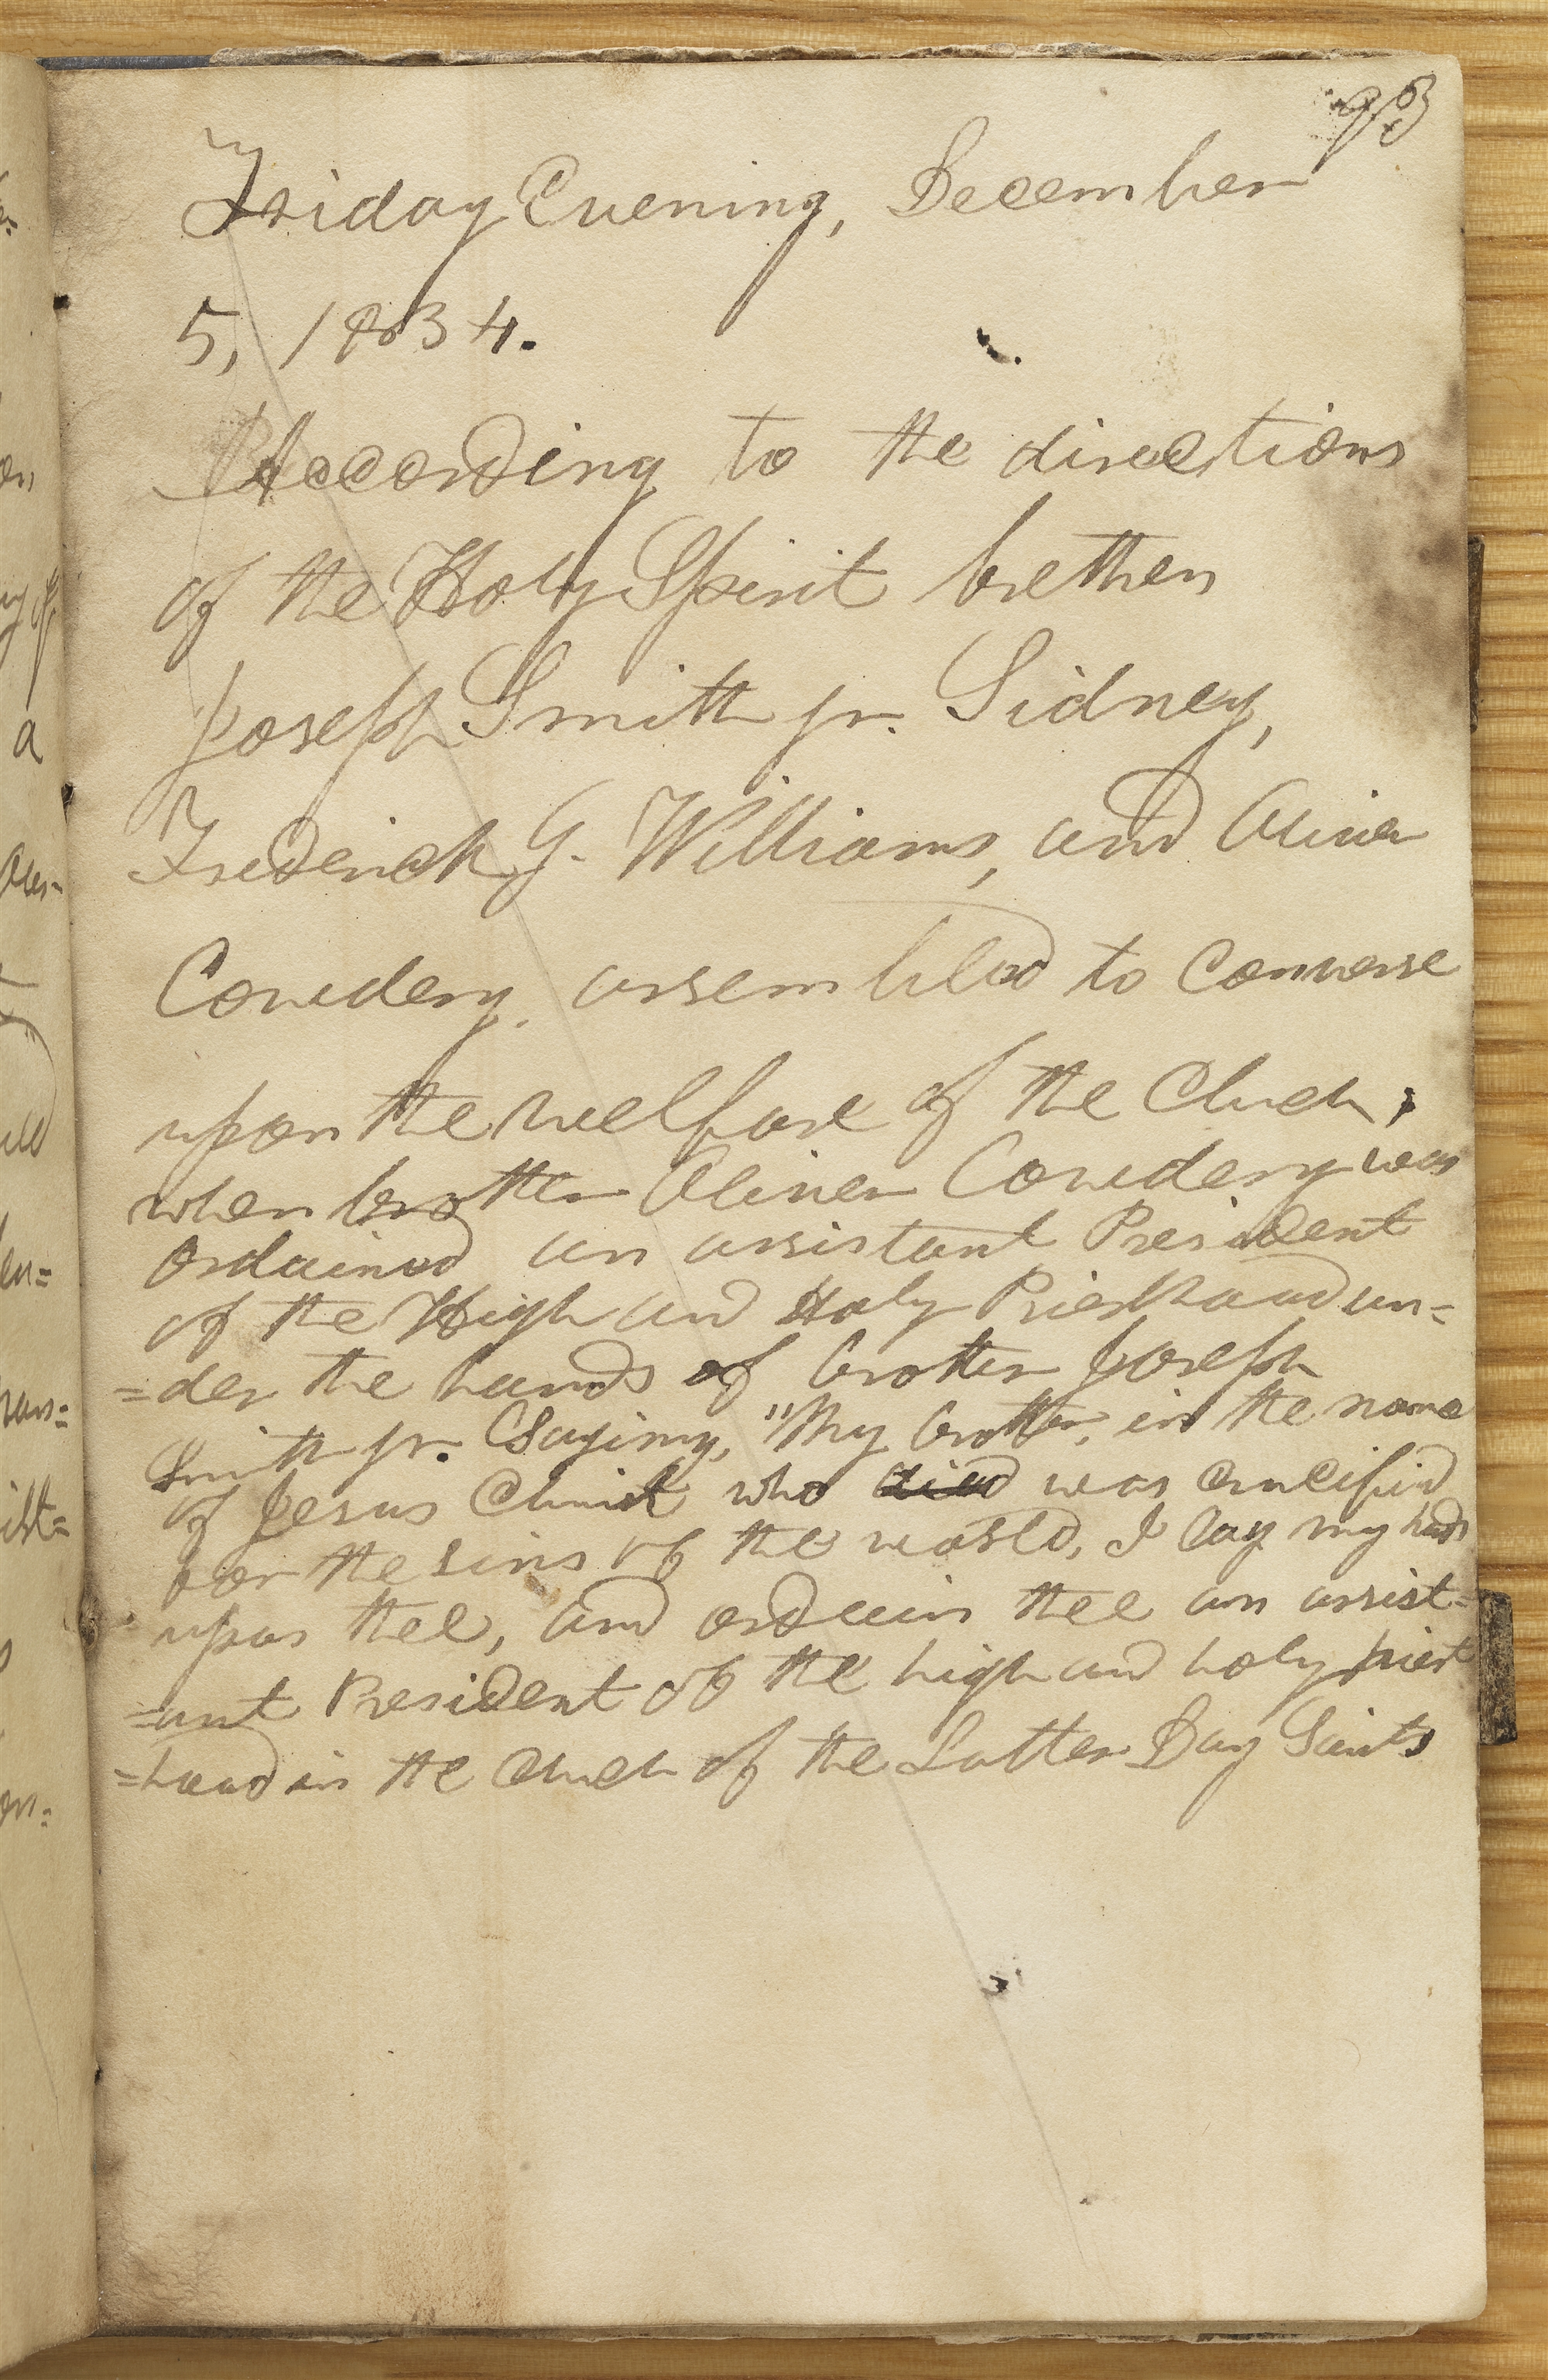 93
Friday Evening, December
5, 1834.
According to the directions
of the Holy Spirit brethen
Joseph Smith jr. Sidney,
Frederick G. Williams, and Oliver
Cowdery, assembled to converse
upon the welfare of the Chuch,
when brother Oliver Cowdery was
ordained an assistant President
of the High and Holy Priesthood un=
=der the hands of brother Joseph
Smith jr. Saying, "My brother, in the name
of Jesus Christ who died was crucified
for the sins of the world, I lay my hads
upon thee, and ordain thee an assist=
=ant President of the high and holy priest
=hood in the chuch of the Latter Day Saints
a